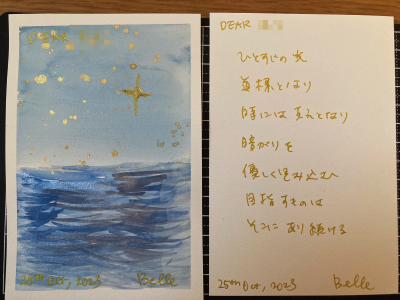 DEAR
25th Oct, 2023 Belle
DEAR
ひとすじの光
道標となり
時には支えとなり
暗がりを
優しく包み込む
目指すものは
そこにあり続ける
25th Oct, 2023 Belle